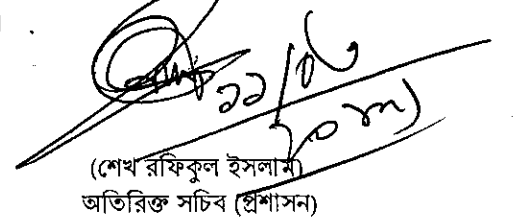 (শেখ রফিকুল ইসলাম)
অতিরিক্ত সচিব (প্রশাসন)